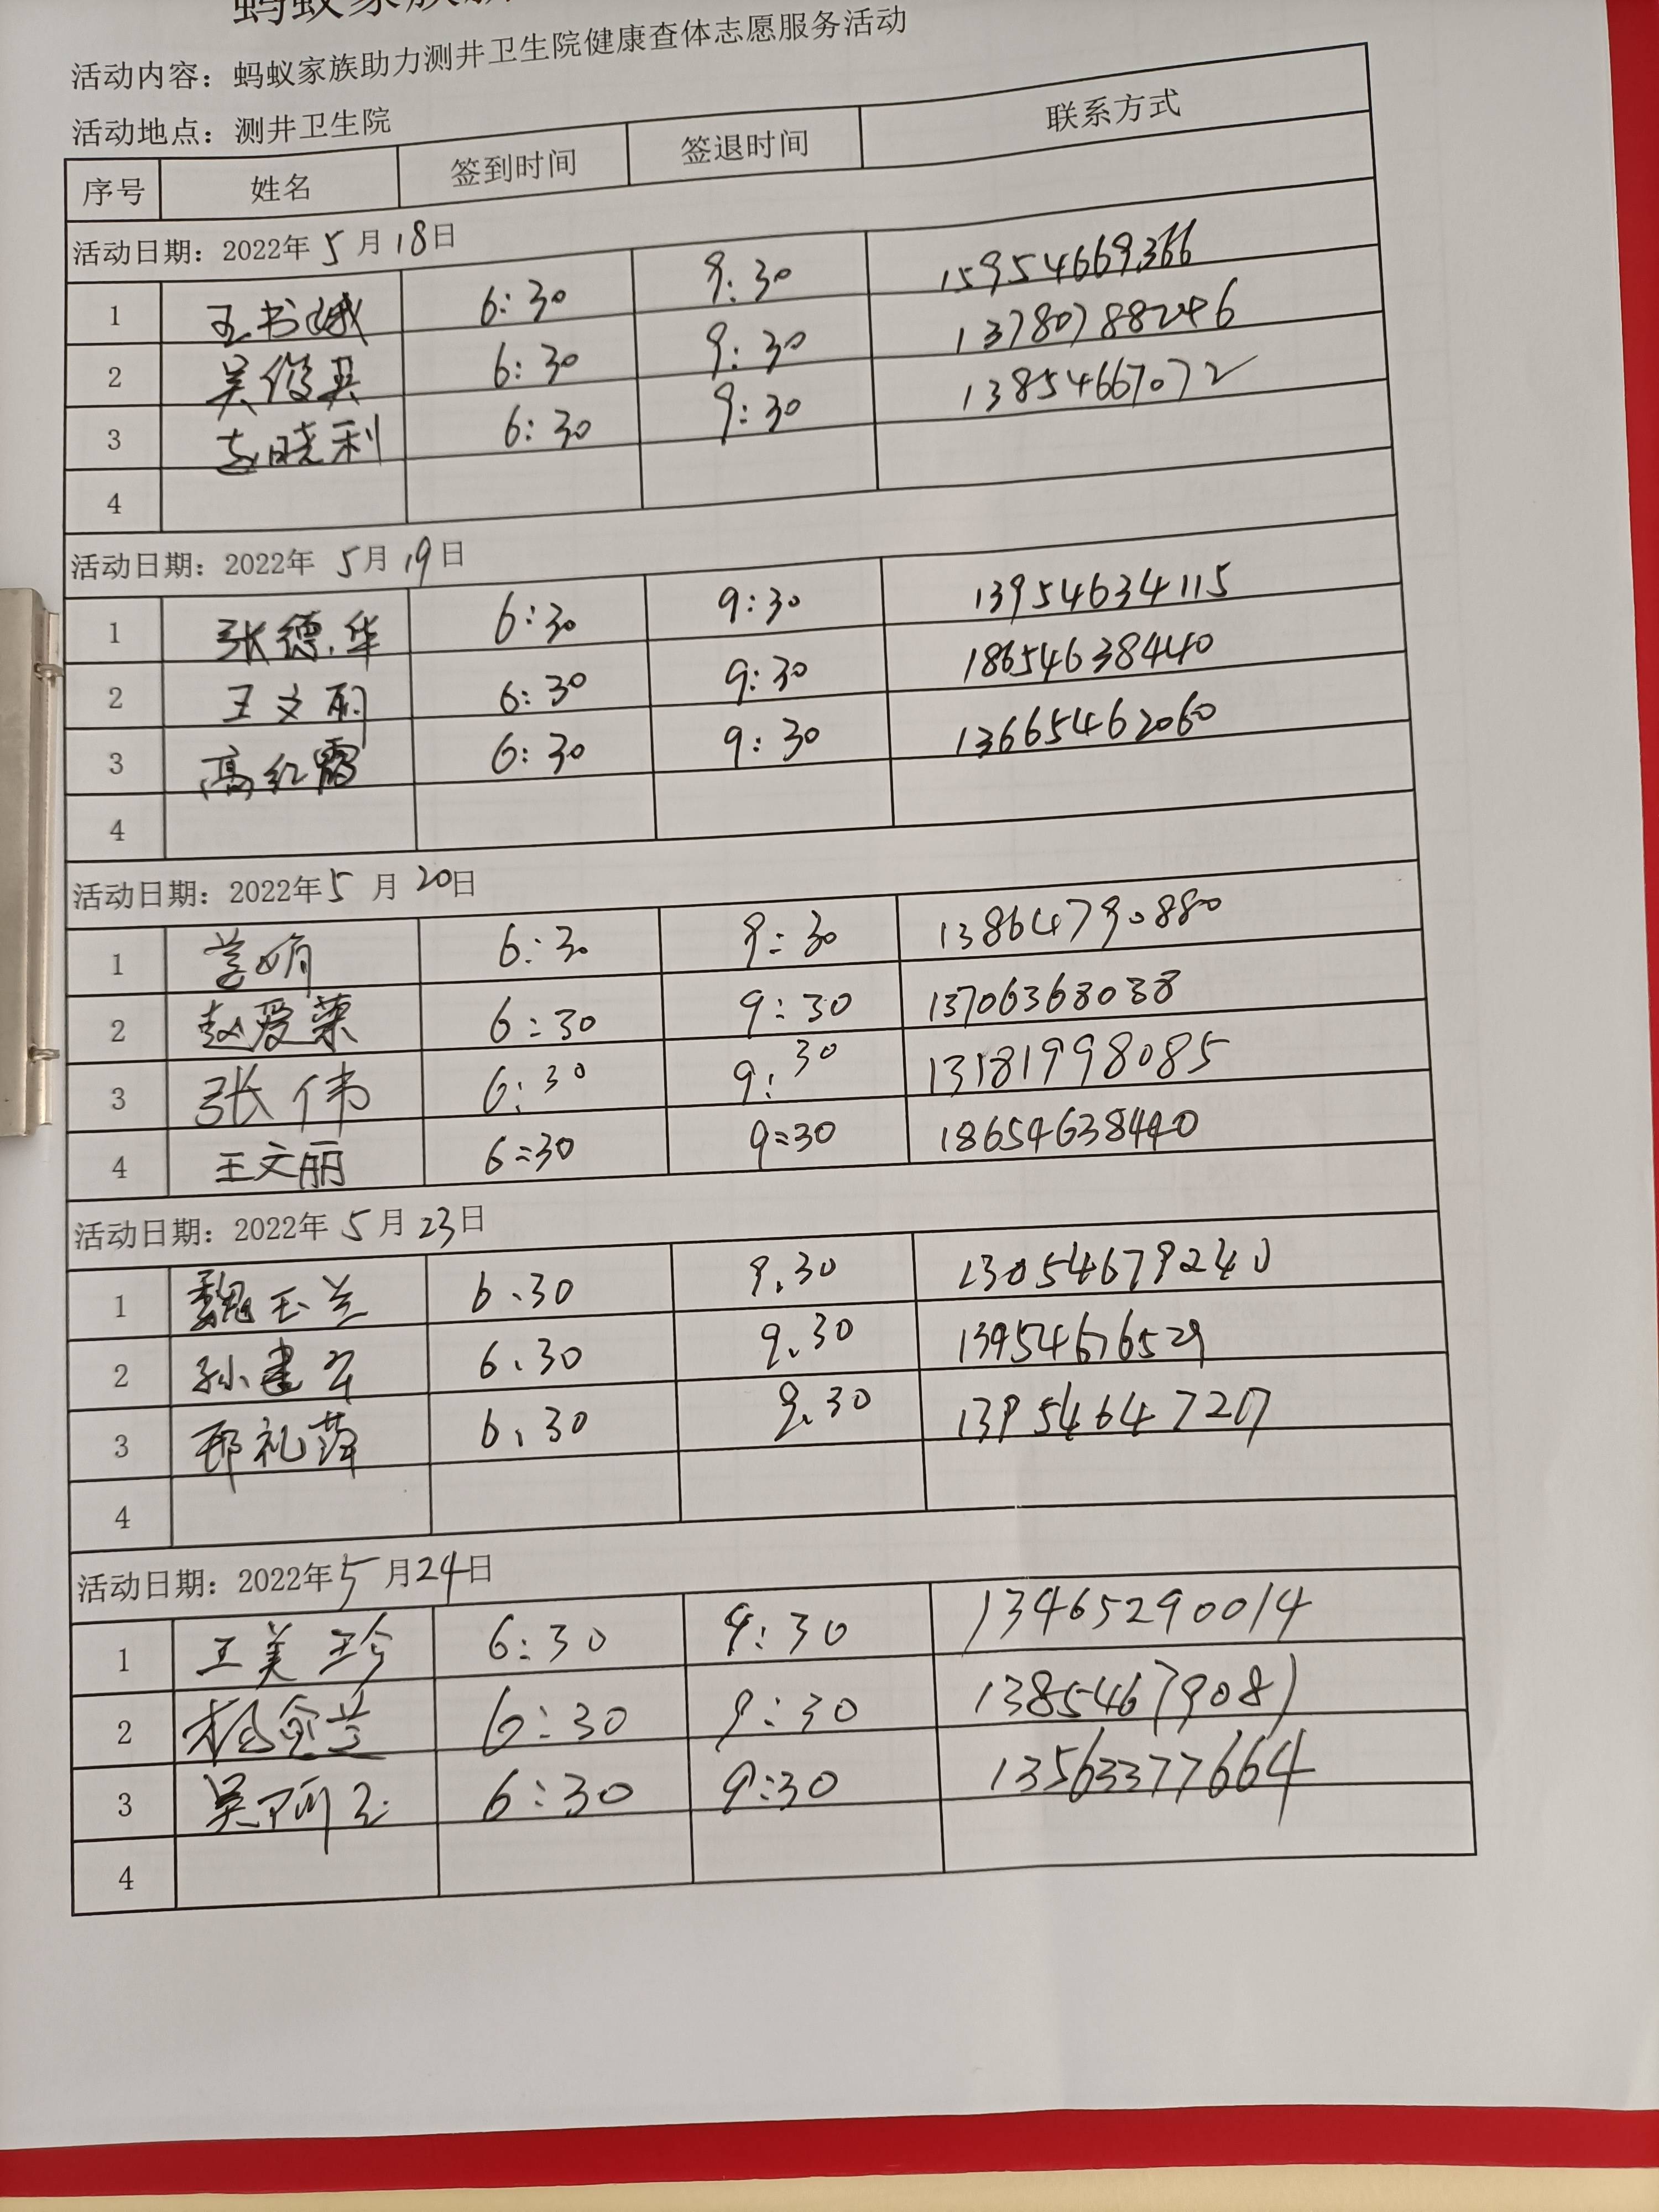 活动内容：蚂蚁家族助力测井卫生院健康查体志愿服务活动
活动地点：测井卫生院
序号 姓名 签到时间 签退时间 联系方式
活动日期：2022年 5 月 18日
1 王书娥 6:30 9:30 15954669366
2 吴俊英 6:30 9:30 13780788246
3 赵晓利 6:30 9:30 13854667072
4
活动日期：2022年 5月 19日
1 张德华 6:30 9:30 13954634115
2 王文丽 6:30 9:30 18654638440
3 高红霞 6:30 9:30 13665462060
4
活动日期：2022年5 月 20日
1 6:30 9:30 13864790880
2 赵爱荣 6:30 9:30 13706368038
3 张伟 6:30 9:30 13181998085
4 王文丽 6:30 9:30 18654638440
活动日期：2022年 5月 23日
1 魏玉兰 6.30 9.30 13054679240
2 孙建云 6.30 9.30 13954676529
3 邢礼萍 6.30 9.30
4
活动日期：2022年5月24日
1 王美珍 6:30 9:30 13465290014
2 杨金兰 6:30 9:30 13854679081
3 6:30 9:30 13563377664
4